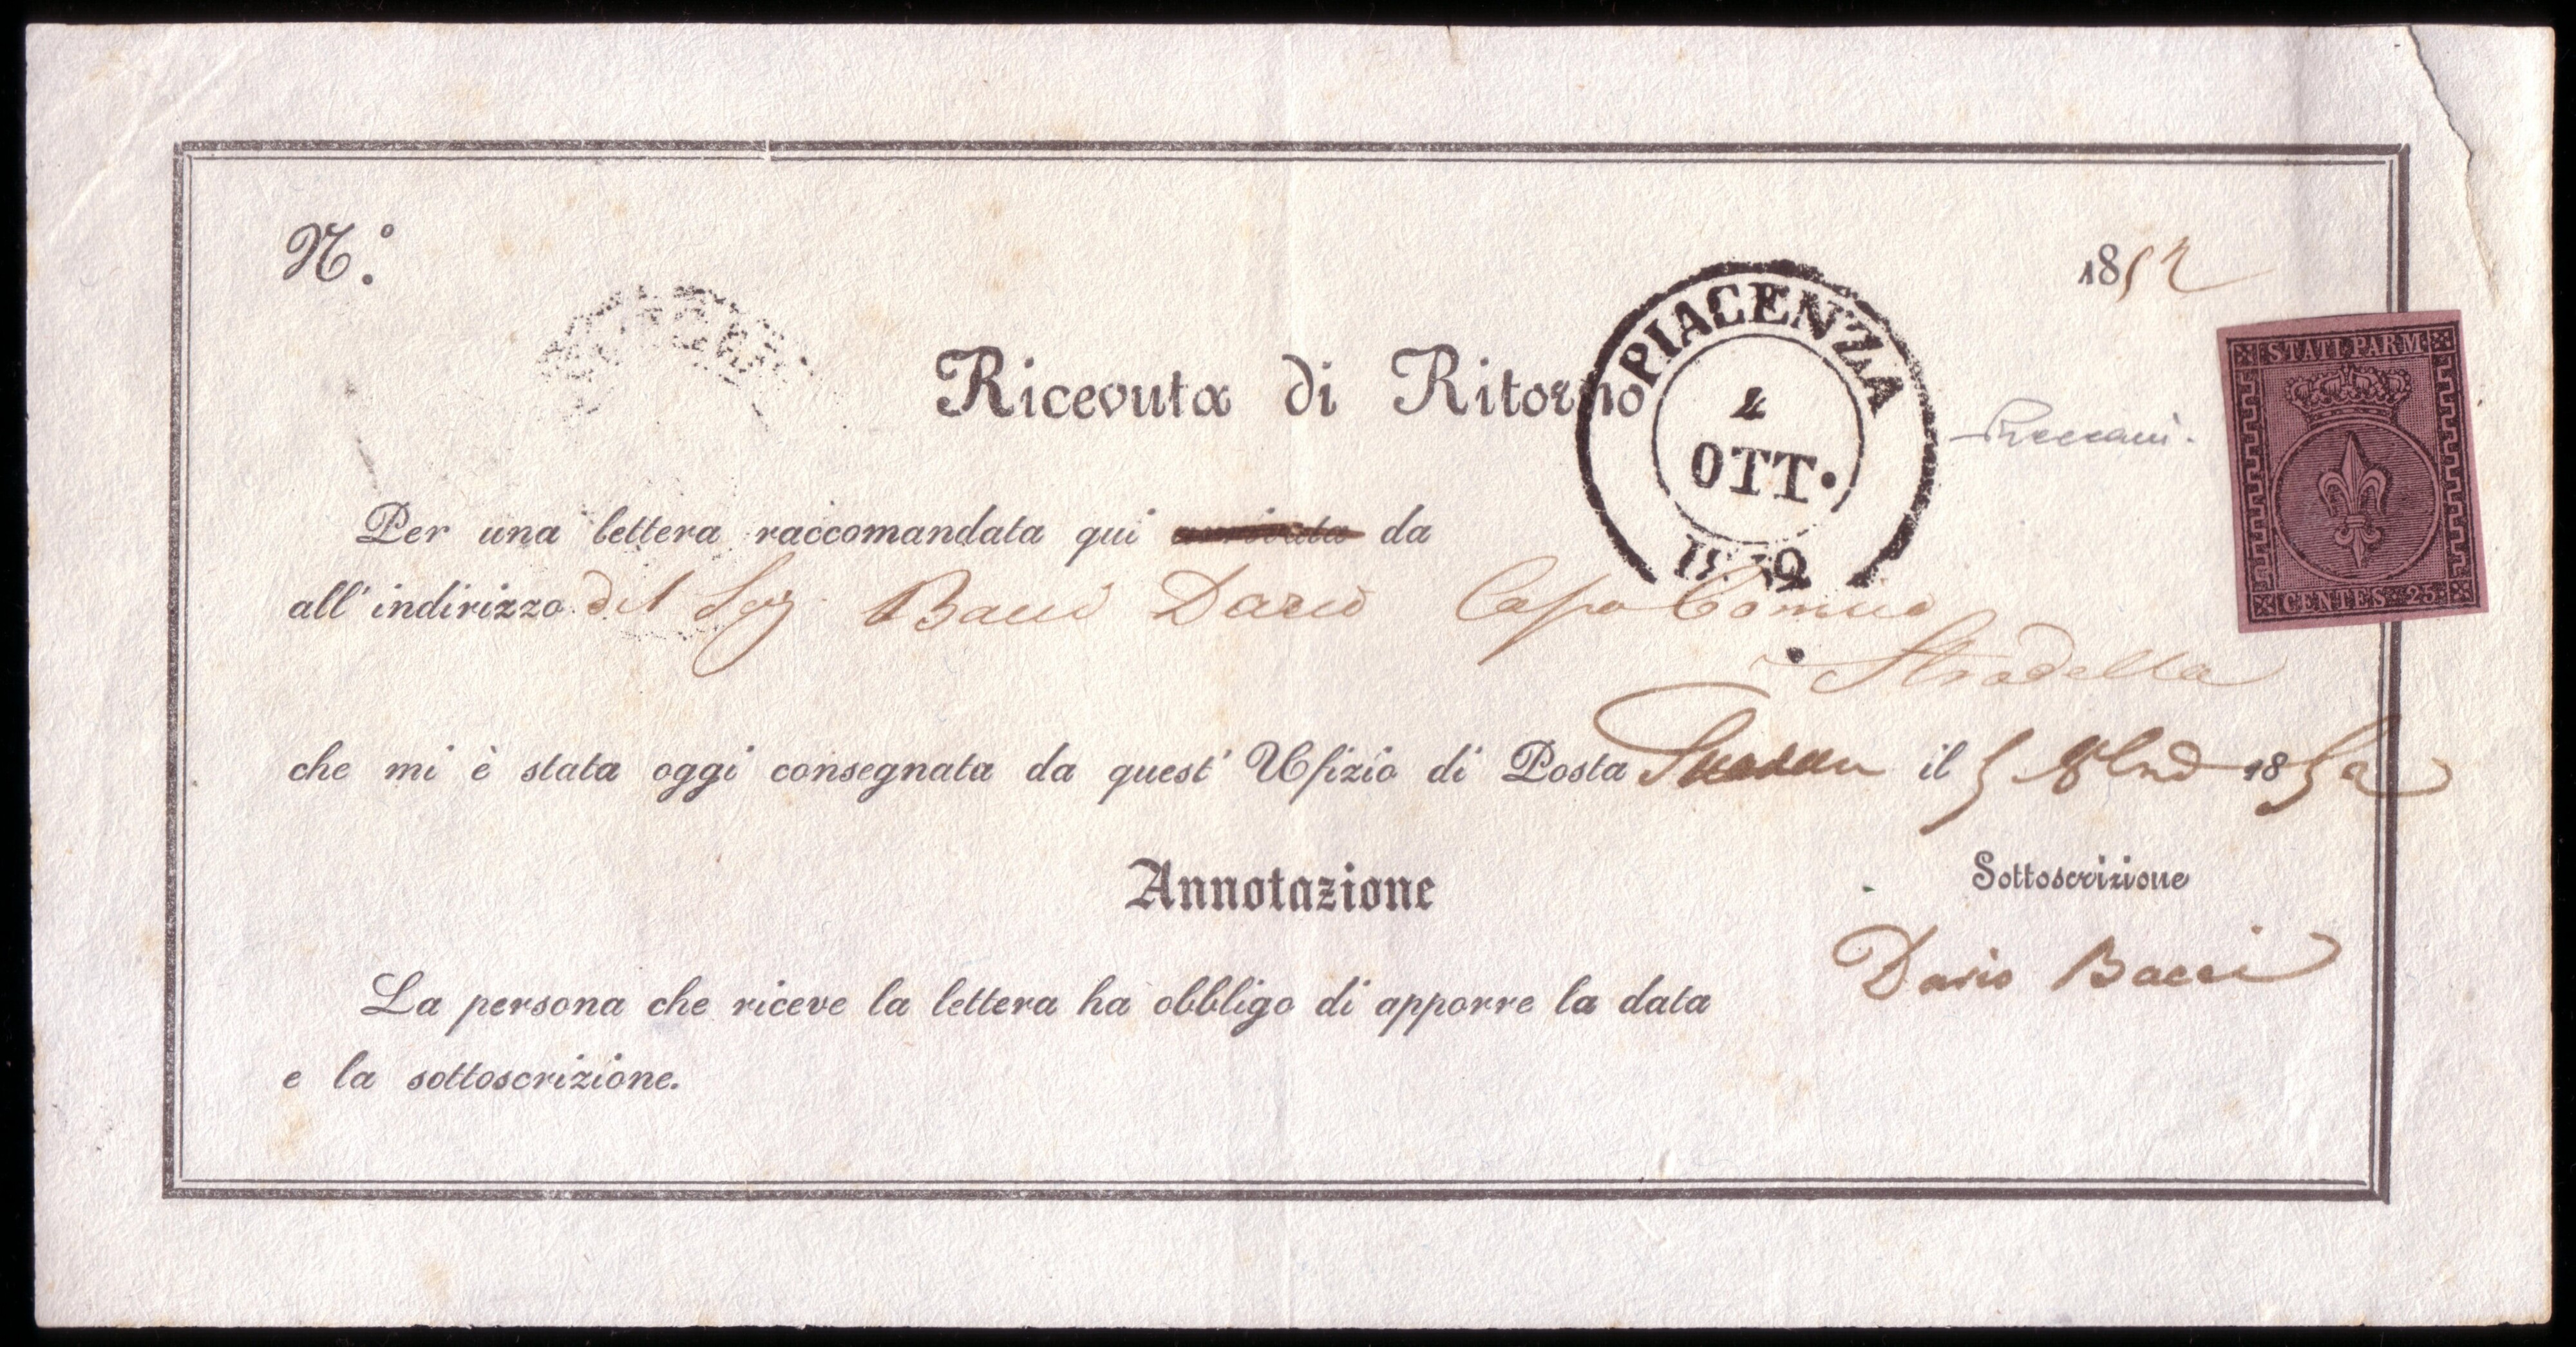 N.º
1852
Ricevuta di Ritorno
PIACENZA
4
OTT.
1852
STATI PARM
CENTES. 25
Per una lettera raccomandata qui da
all' indirizzo del Sig Bacci Dario Capo Comico
Stradella
che mi è stata oggi consegnata da quest' Ufizio di Posta il 5 8bre 1852
Annotazione
Sottoscrizione
Dario Bacci
La persona che riceve la lettera ha obbligo di apporre la data
e la sottoscrizione.